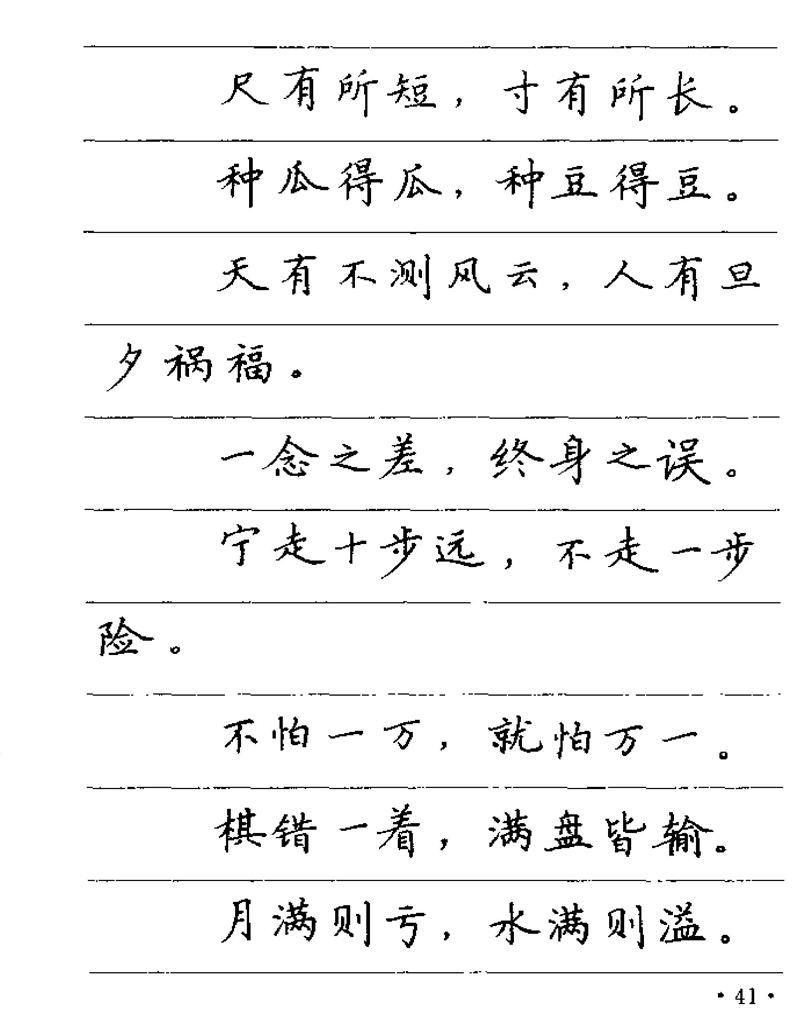 尺有所短，寸有所长。
种瓜得瓜，种豆得豆。
天有不测风云，人有旦
夕祸福。
一念之差，终身之误。
宁走十步远，不走一步
险。
不怕一万，就怕万一。
棋错一着，满盘皆输。
月满则亏，水满则溢。
·41·